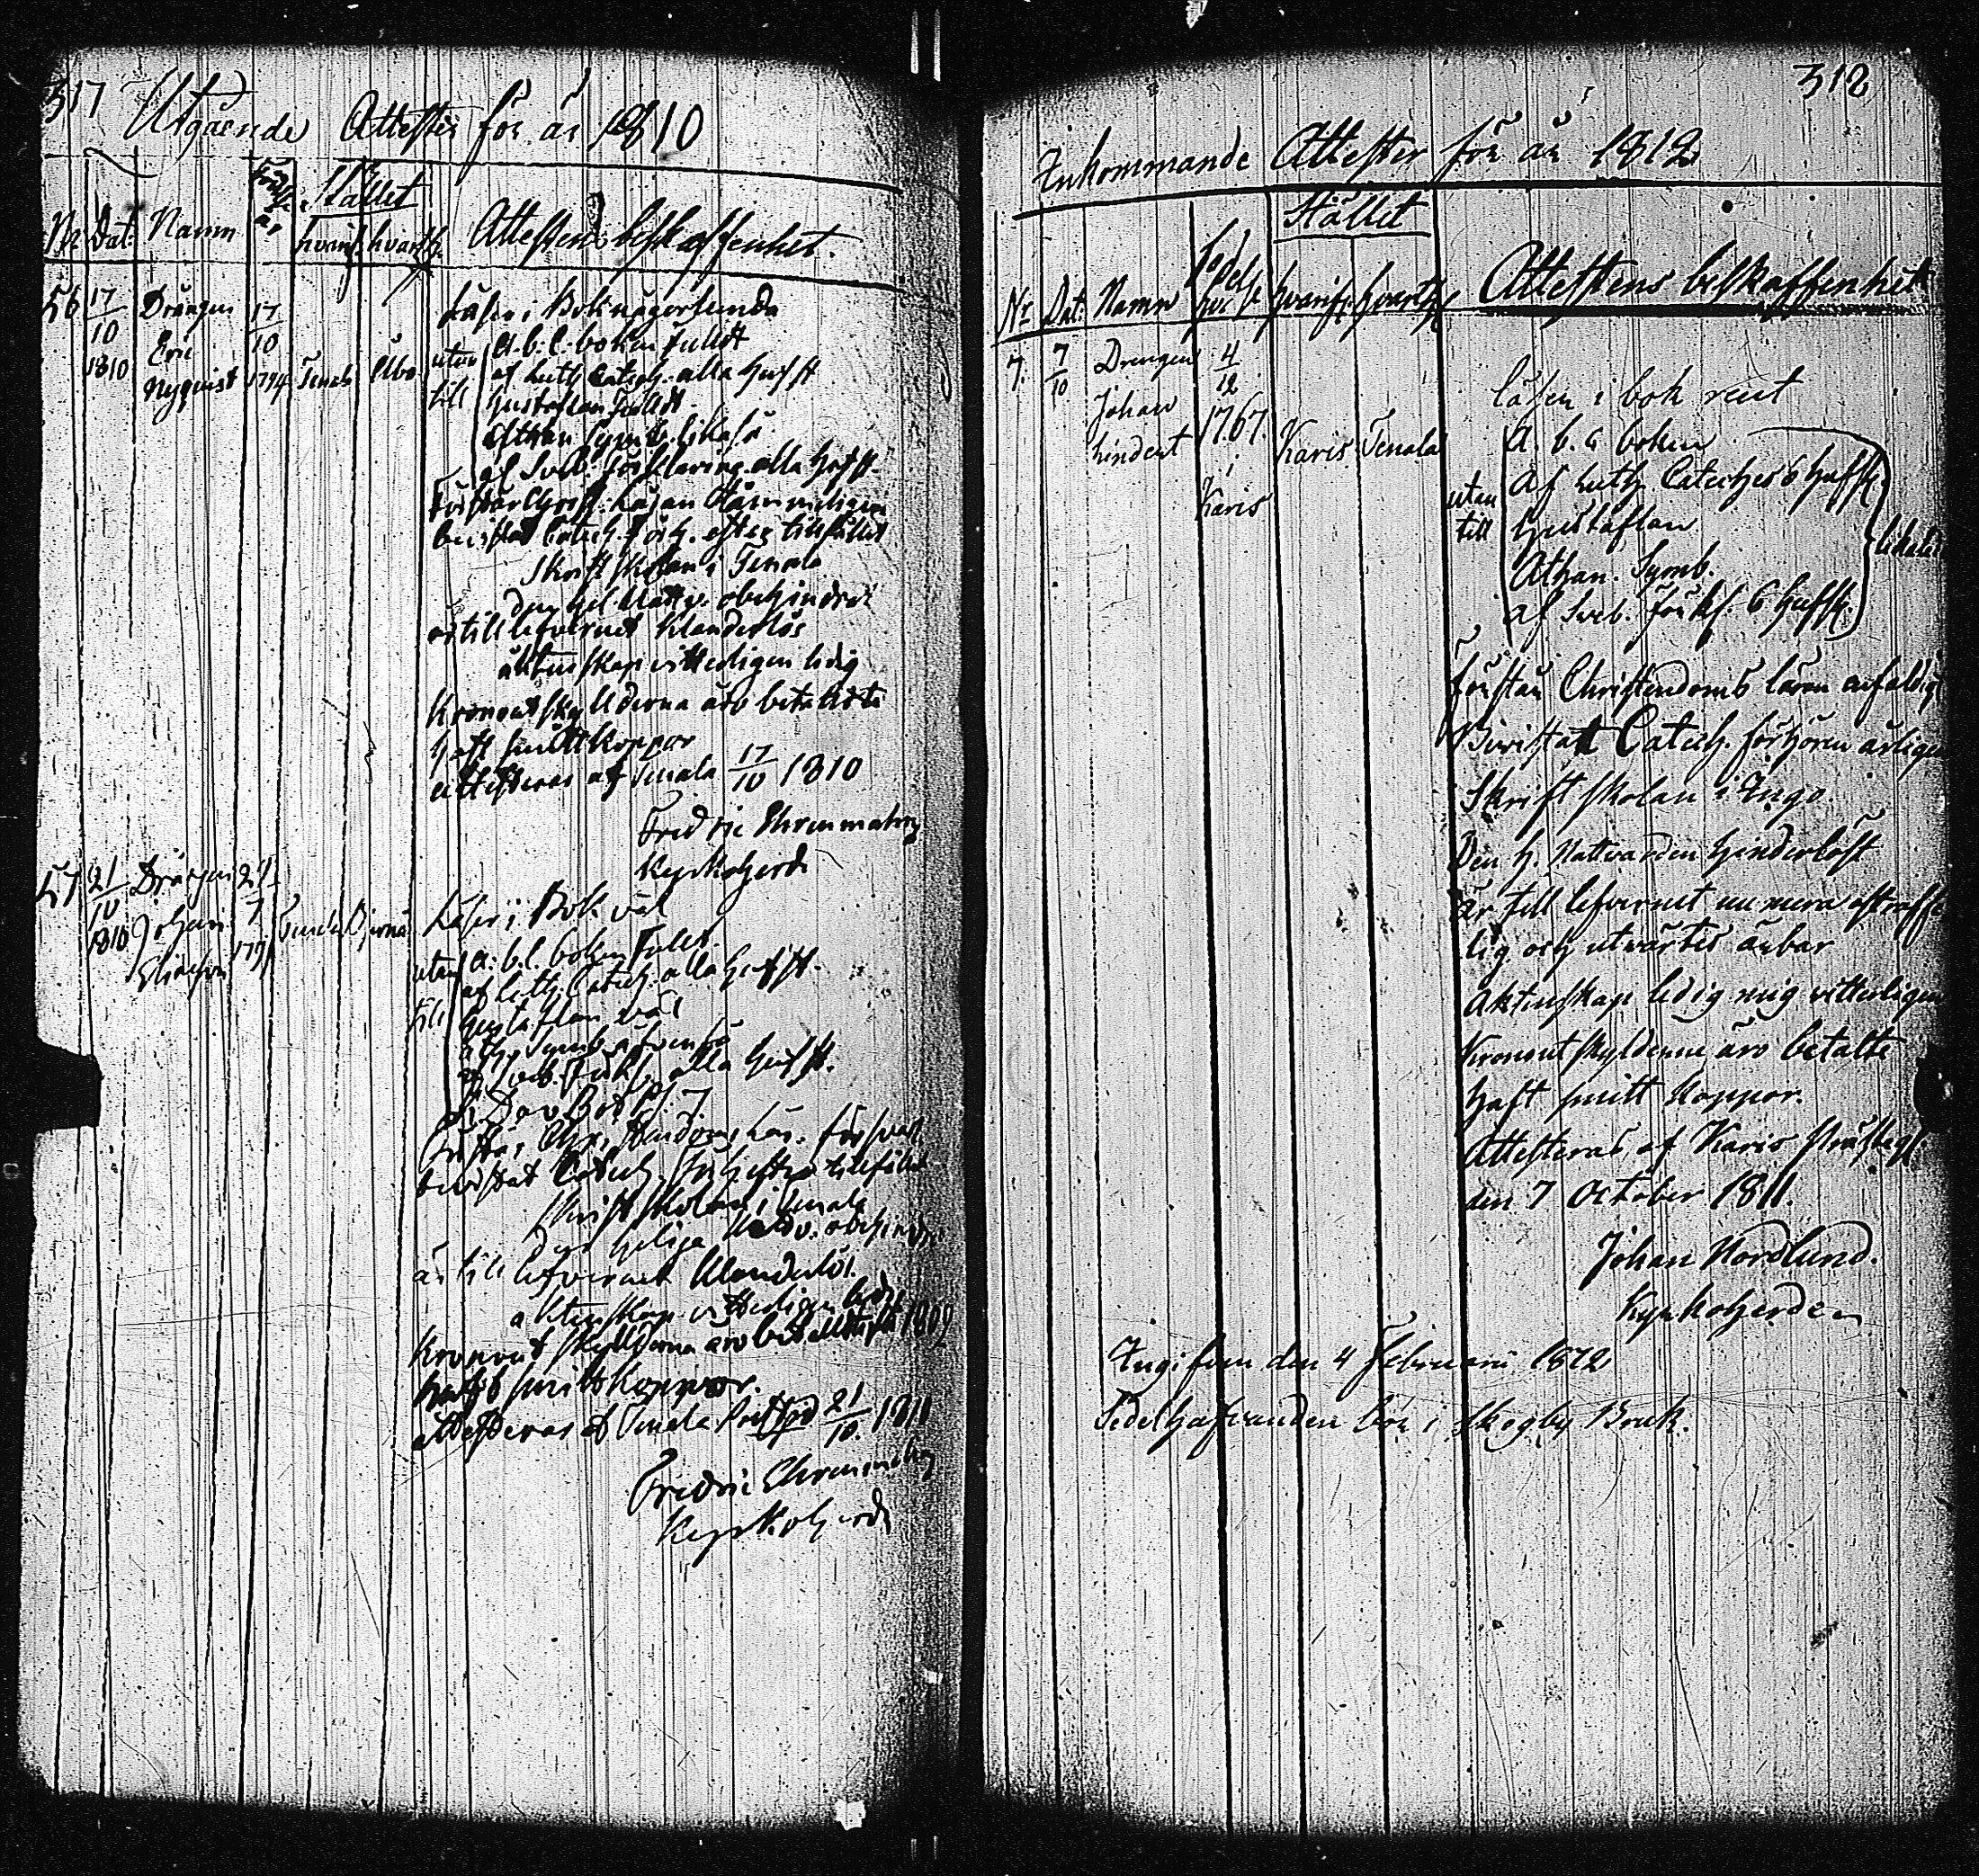 317
Utgående Attester för år 1810
Stället
Nr Dat: Namn hvarif. hvarth. Attestens beskaffenhet.
56 17/10 1810 Drängen Eric Nyquist 17/10 1794 Tenala Åbo
Läser i Bok någorlunda
utan till
a.b.c. boken fullt
af Luth. Catech. alla Hufst
Hustaflan fulldt
Athan Symb. likaså
af Sveb. förklaring alla Hufst.
Förstår Christ: Läran
bevistat Catech. förh. efter tillfället
Skriftskolan i Tenala
den hel. Nattv. obehindrat
är till lefvernet klanderlös
äktenskap vitterligen ledig
Kronoutskylderna äro betalte
haft smittkoppor
attesteras af Tenala 17/10 1810
Fredric Ehrenmalm
Kyrkoherde
57 21/10 1810 Drängen Johan Eliasson 21/7 1791 Tenala Bjerno
Läser i Bok väl
utan till
a.b.c. boken fullt.
af Luth. Catech. alla Hufst.
Hustaflan väl
Ath. Symb. äfvenså
af Sveb. Förkl. alla Hufst.
Dav. Bot Ps. 7
Förstår Christendoms Lär. försvarl
bevistat Catech. förh. efter tillfället
skriftskolan i Tenala
Den helige Nattv. obehindr
är till lefvernet klanderlös.
aktenskap vitterligen ledig
Kronout skylderna äro betallte 1809
haft smittkoppor.
attesteras af Tenala Prestgd 21/10. 1810
Fredric Ehrenmalm
Kyrkoherde
312
Inkommande Attester för år 1812
Stället
Nr. Dat: Namn hvarifr. hvarth. Attestens beskaffenhet
7. 7/10 Drengen Johan Lindert 4/12 1767. i Karis Karis Tenala
Läser i bok rent
utan till
A. b. c boken
Af Luth Cateches 6 Hufst.
Hustaflan
Athan. Symb.
af Sveb. förkl. 6 Hufst.
förstår Christendoms läran enfaldigt
Bevistat Catech. förhören årligen
Skriftskolan i Ingo
Den H. Nattvarden hinderlöst
Är till lefvernet nu mera ostraff
lig och utvärtes ärbar
Aktenskap ledig mig vitterligen
Kronout skylderne äro betalte
haft smitt koppor.
Attesteras, af Karis Prästegl.
den 7 October 1811.
Johan Nordlund.
Kyrkoherden
Ingifven den 4 Februarii 1812
Sedelhafvanden bor i Skogby Bruk.